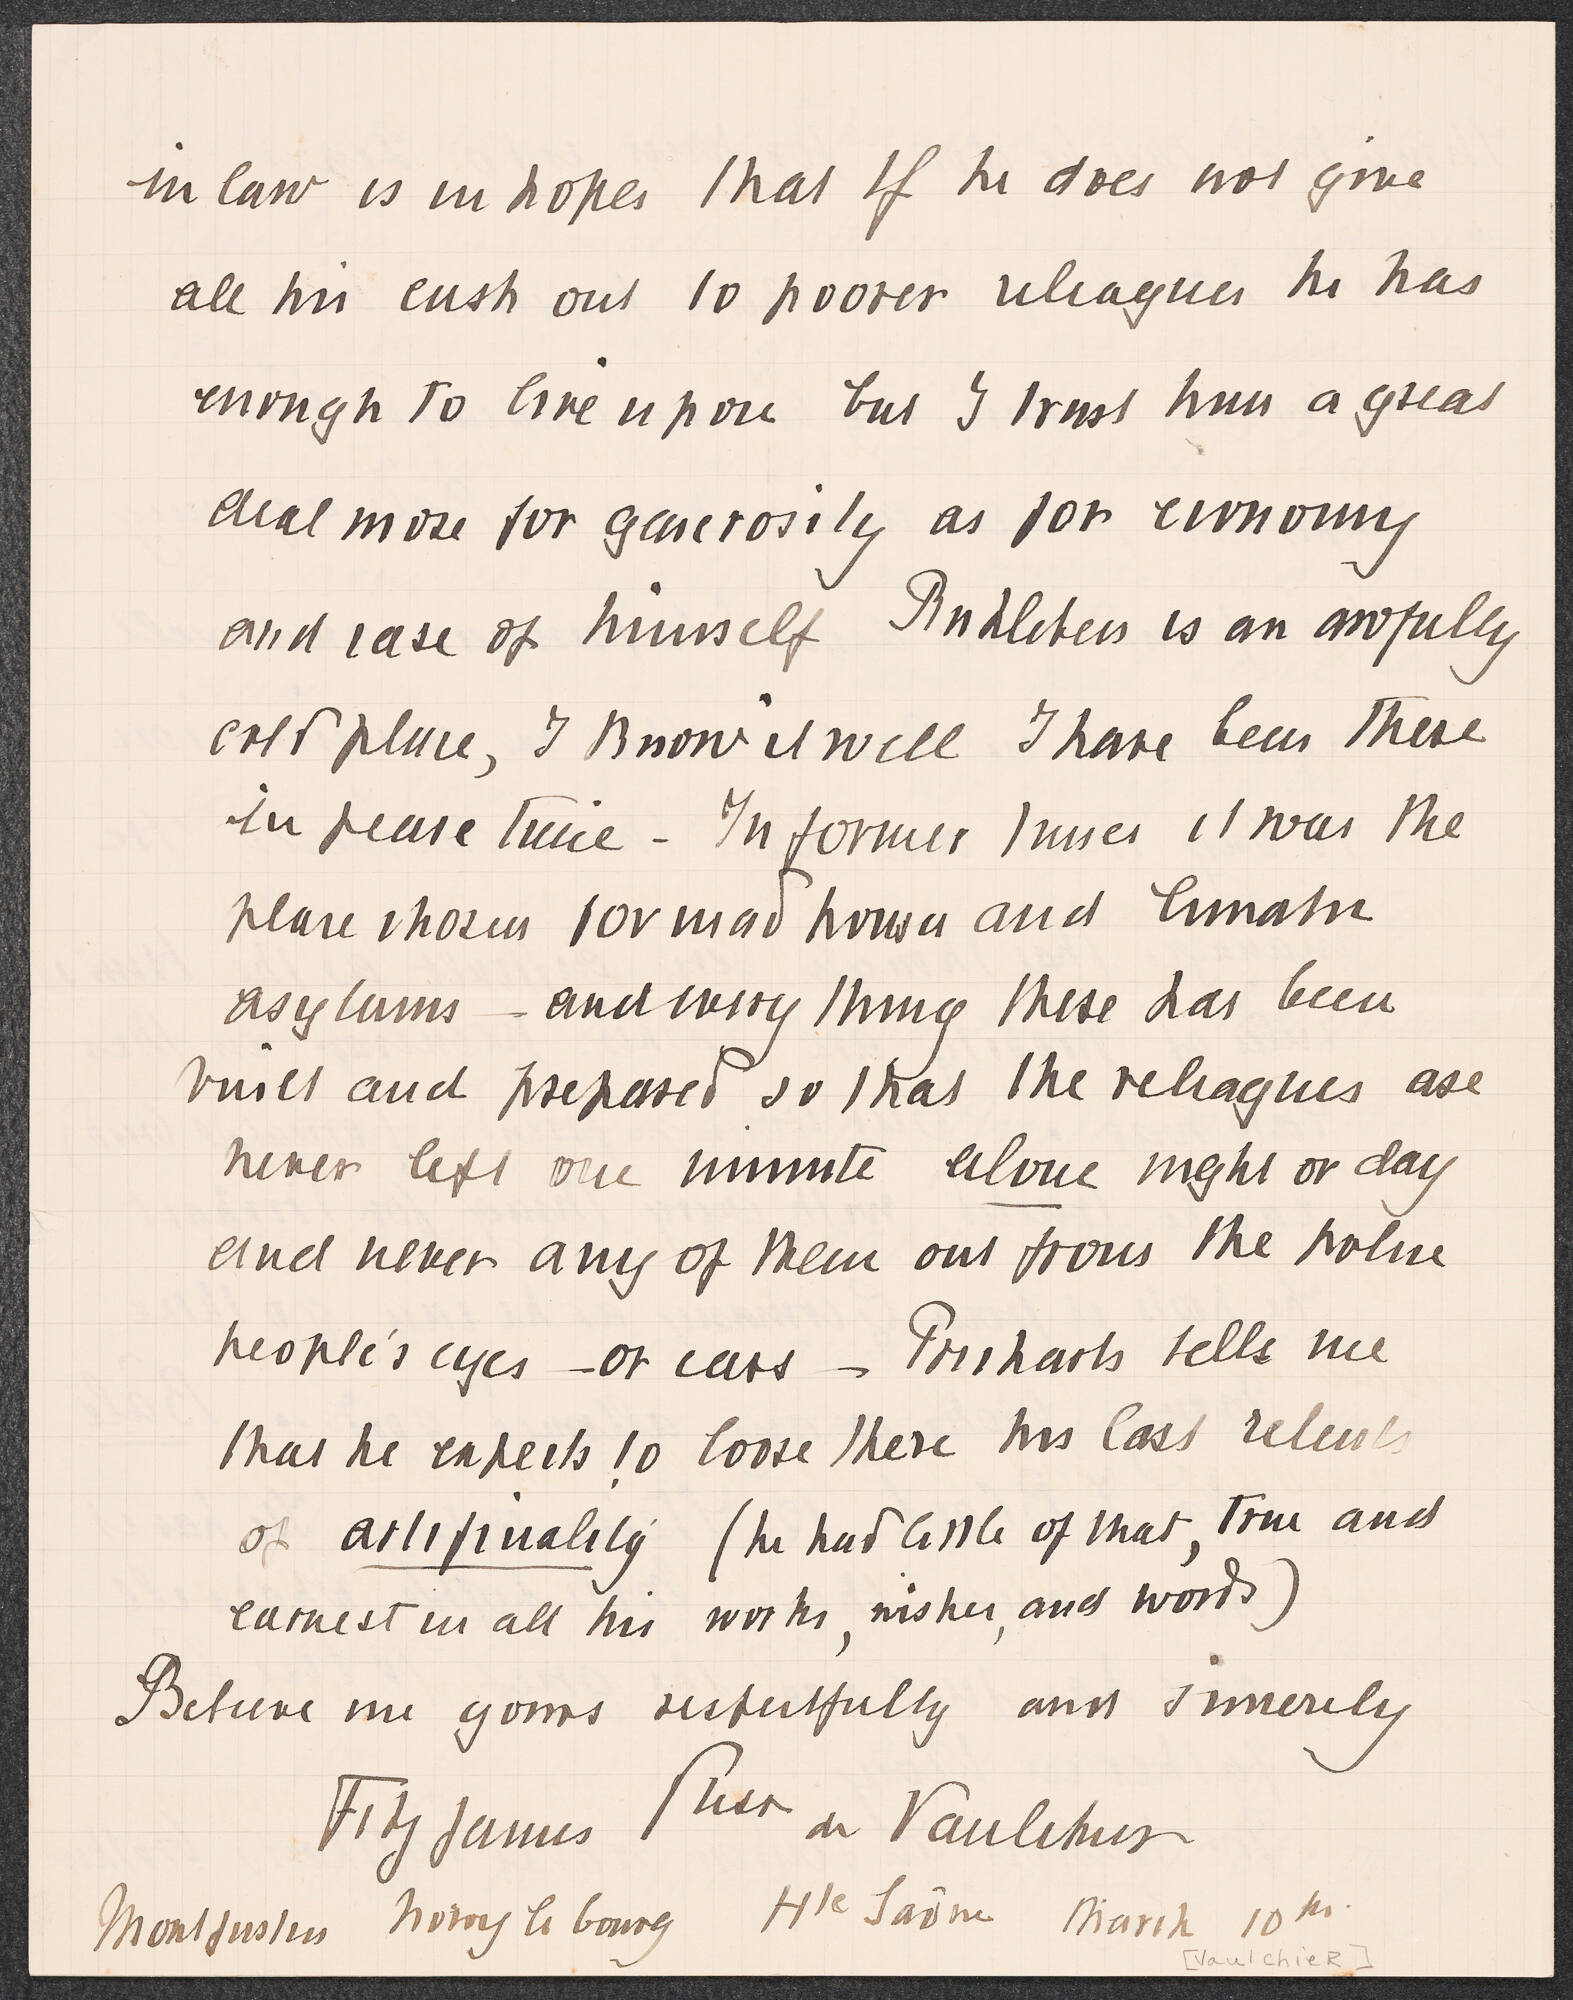 in law is in hopes that If he does not give
all his cash out to poorer colleagues he has
enough to live upon but I trust him a great
deal more for generosity as for economy
and case of himself Budleben is an awfully
cold place, I know it well I have been there
in peace time - In former times it was the
place chosen for mad houses and lunatic
asylums - and every thing there has been
built and prepared so that the colleagues are
never left one minute alone night or day
and never any of them out from the police
people's eyes - or ears - Pritchards tells me
that he expects to loose there his last
of artificiality (he had little of that, true and
earnest in all his works, wishes, and words)
Believe me yours respectfully and sincerely
Fitz James de Vaulchier
Montjustin Noroy le bourg Hte Saône March 10th.
[VaulchieR]